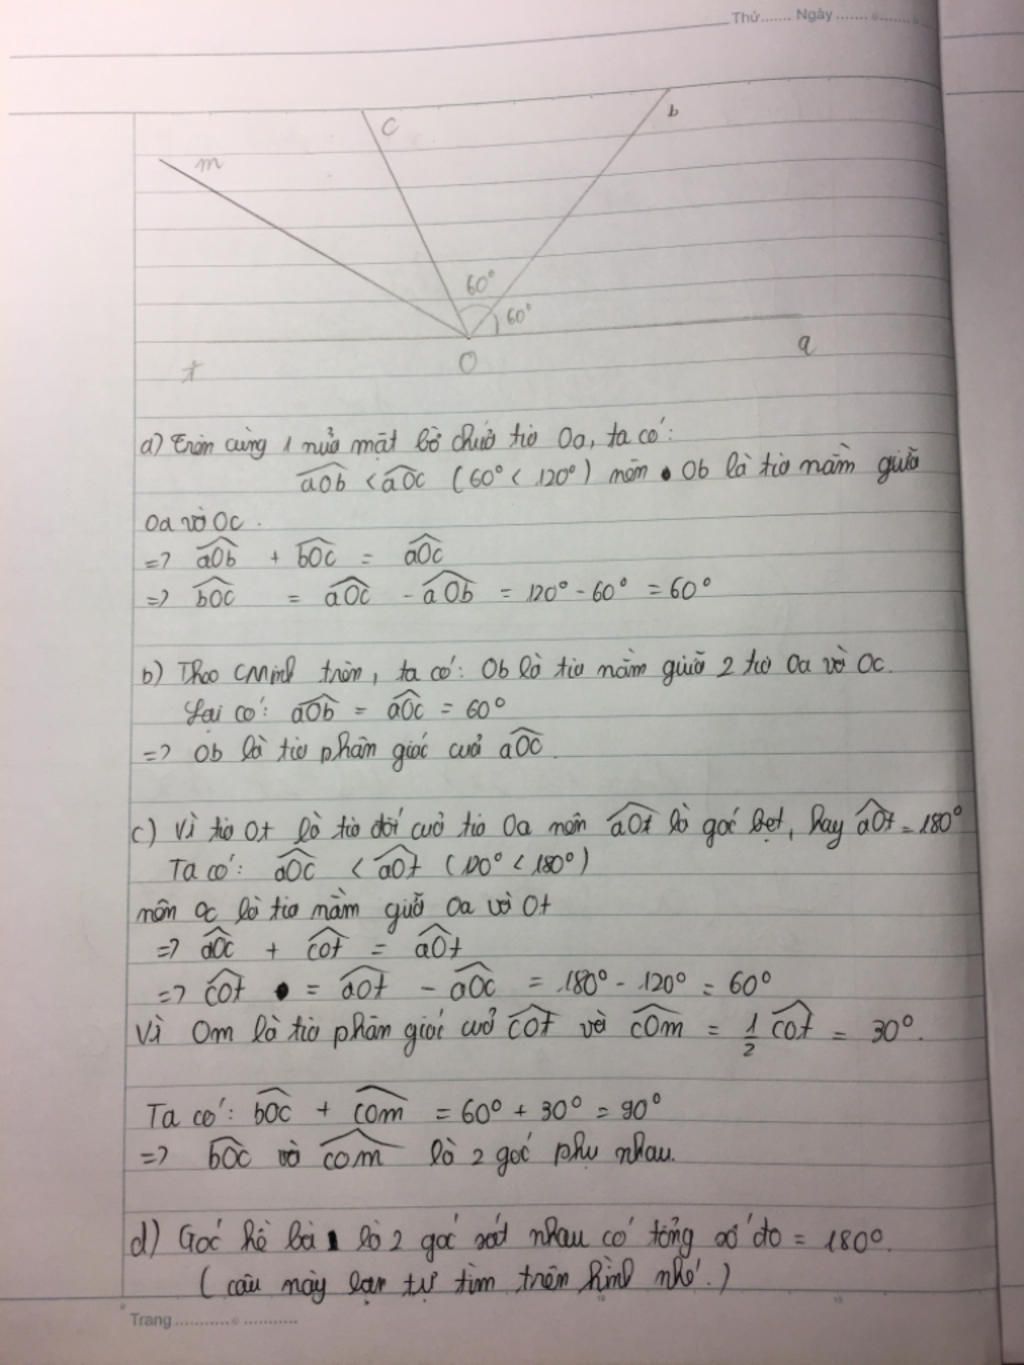 Thứ....... Ngày ....... ........
m
C
b
60°
60°
t
O
a
a) Trên cùng 1 nửa mặt bờ chứa tia Oa, ta có:
aOb < aOc (60° < 120°) nên Ob là tia nằm giữa
Oa và Oc.
=> aOb + bOc = aOc
=> bOc = aOc - aOb = 120° - 60° = 60°
b) Theo CMinh trên, ta có: Ob là tia nằm giữa 2 tia Oa và Oc.
Lại có: aOb = aOc = 60°
=> Ob là tia phân giác của aOc.
c) Vì tia Ot là tia đối của tia Oa nên aOt là góc bẹt, hay aOt = 180°
Ta có: aOc < aOt (120° < 180°)
nên Oc là tia nằm giữa Oa và Ot
=> aOc + cOt = aOt
=> cOt = aOt - aOc = 180° - 120° = 60°
Vì Om là tia phân giác của cOt và cOm = 1/2 cOt = 30°.
Ta có: bOc + cOm = 60° + 30° = 90°
=> bOc và cOm là 2 góc phụ nhau.
d) Góc kề bù là 2 góc sát nhau có tổng số đo = 180°.
(câu này bạn tự tìm trên hình nhé.)
Trang ........... ...........